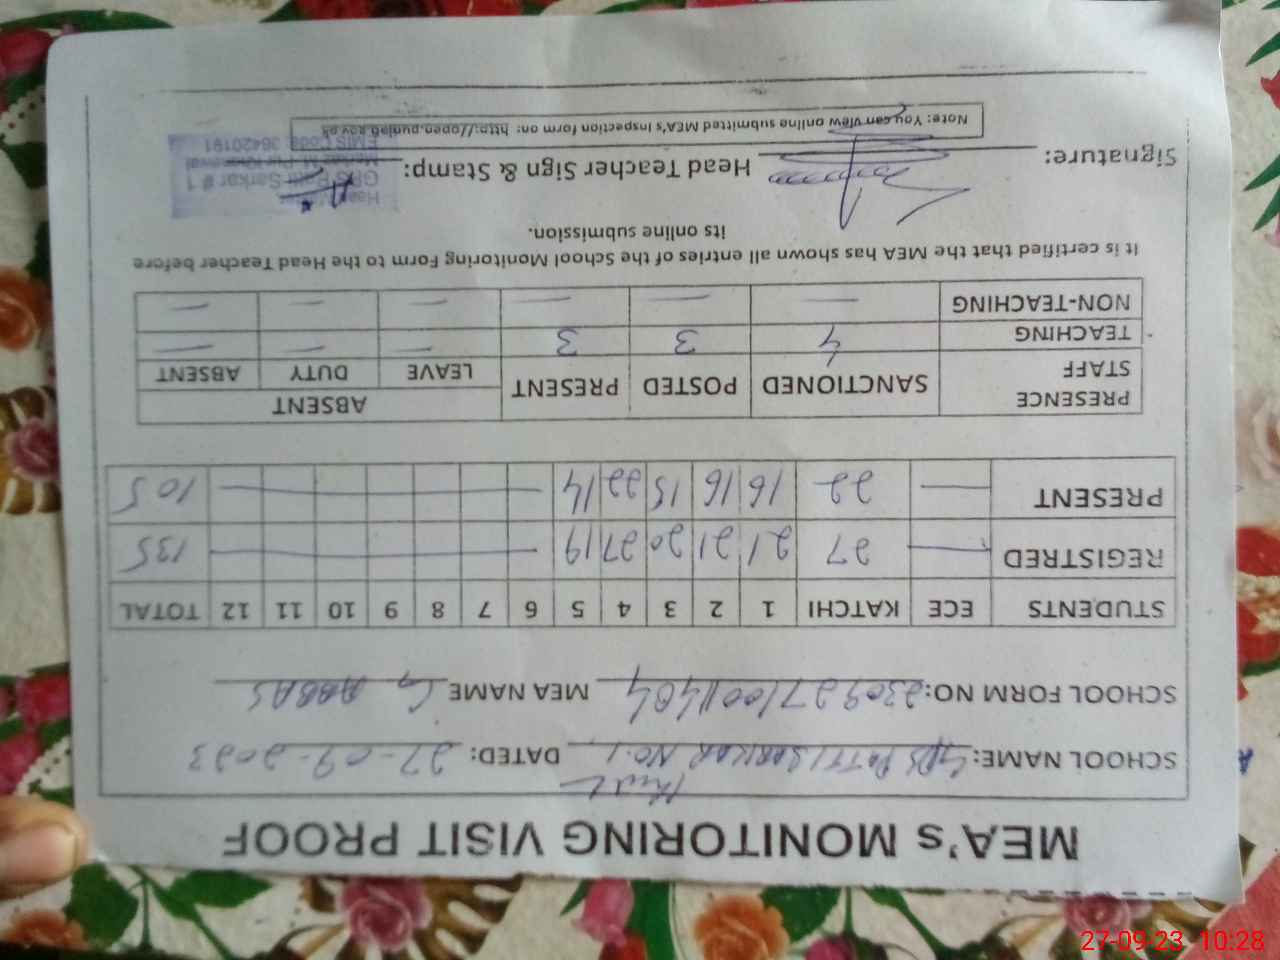 MEA's MONITORING VISIT PROOF
SCHOOL NAME: GPS PATTI SARKAR NO.1 DATED: 27-09-2023
SCHOOL FORM NO: MEA NAME G ABBAS
STUDENTS ECE KATCHI 1 2 3 4 5 6 7 8 9 10 11 12 TOTAL
REGISTRED — 27 21 21 20 27 19 — 135
PRESENT — 22 16 16 15 22 14 — 105
PRESENCE STAFF SANCTIONED POSTED PRESENT ABSENT
LEAVE DUTY ABSENT
TEACHING 4 3 3 — — —
NON-TEACHING — — — — — —
It is certified that the MEA has shown all entries of the School Monitoring Form to the Head Teacher before
its online submission.
Signature: Head Teacher Sign & Stamp:
Head
GPS Patti Sarkar # 1
EMIS Code 36420191
Note: You can view online submitted MEA's inspection form on: http://open.punjab.gov.pk
27-09-23 10:28